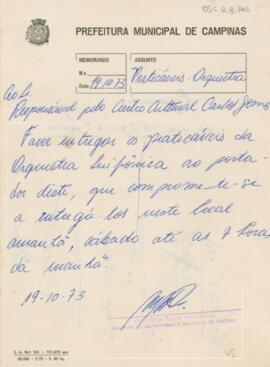 OSC 2.8.145
PREFEITURA MUNICIPAL DE CAMPINAS
MEMORANDO
ASSUNTO
N.o
Praticáveis - Orquestra
Data 19.10.73
Ao Sr.
Responsável pelo Centro Cultural Carlos Gomes
Favor entregar os praticáveis da
Orquestra Sinfônica ao porta-
dor deste, que compromete-se
a entregá-los neste local
amanhã, sábado até as 7 horas
da manhã.
19-10-73